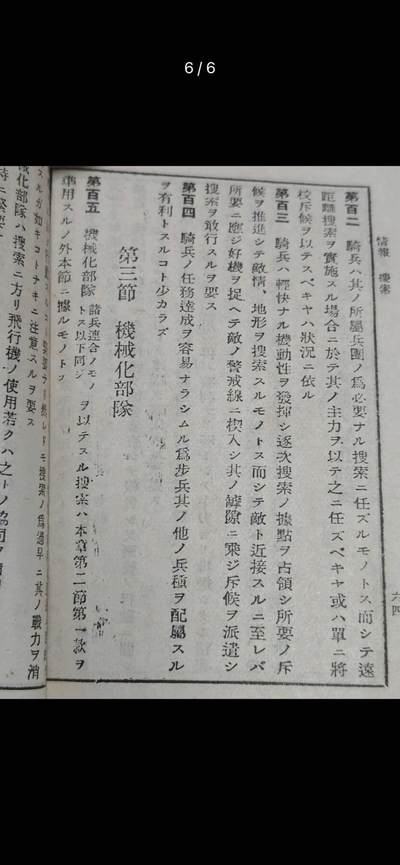 6/6
情報 捜索
六四
第百二 騎兵ハ其ノ所屬兵團ノ爲必要ナル捜索ニ任ズルモノトス而シテ遠
距離捜索ヲ實施スル場合ニ於テ其ノ主力ヲ以テ之ニ任ズベキヤ或ハ單ニ將
校斥候ヲ以テスベキヤハ狀況ニ依ル
第百三 騎兵ハ輕快ナル機動性ヲ發揮シ逐次捜索ノ據點ヲ占領シ所要ノ斥
候ヲ推進シテ敵情、地形ヲ捜索スルモノトス而シテ敵ト近接スルニ至レバ
所要ニ應ジ好機ヲ捉ヘテ敵ノ警戒線ニ楔入シ其ノ罅隙ニ乘ジ斥候ヲ派遣シ
捜索ヲ敢行スルヲ要ス
第百四 騎兵ノ任務達成ヲ容易ナラシムル爲步兵其ノ他ノ兵種ヲ配屬スル
ヲ有利トスルコト少カラズ
第三節 機械化部隊
第百五 機械化部隊 諸兵連合ノモノトス以下同ジ ヲ以テスル捜索ハ本章第二節第一款ヲ
準用スルノ外本節ニ據ルモノトス
捜索ノ爲過早ニ其ノ戰力ヲ消
スルガ如キコトナキニ注意スルヲ要ス
機械化部隊ハ捜索ニ方リ飛行機ノ使用若クハ之トノ協同ヲ